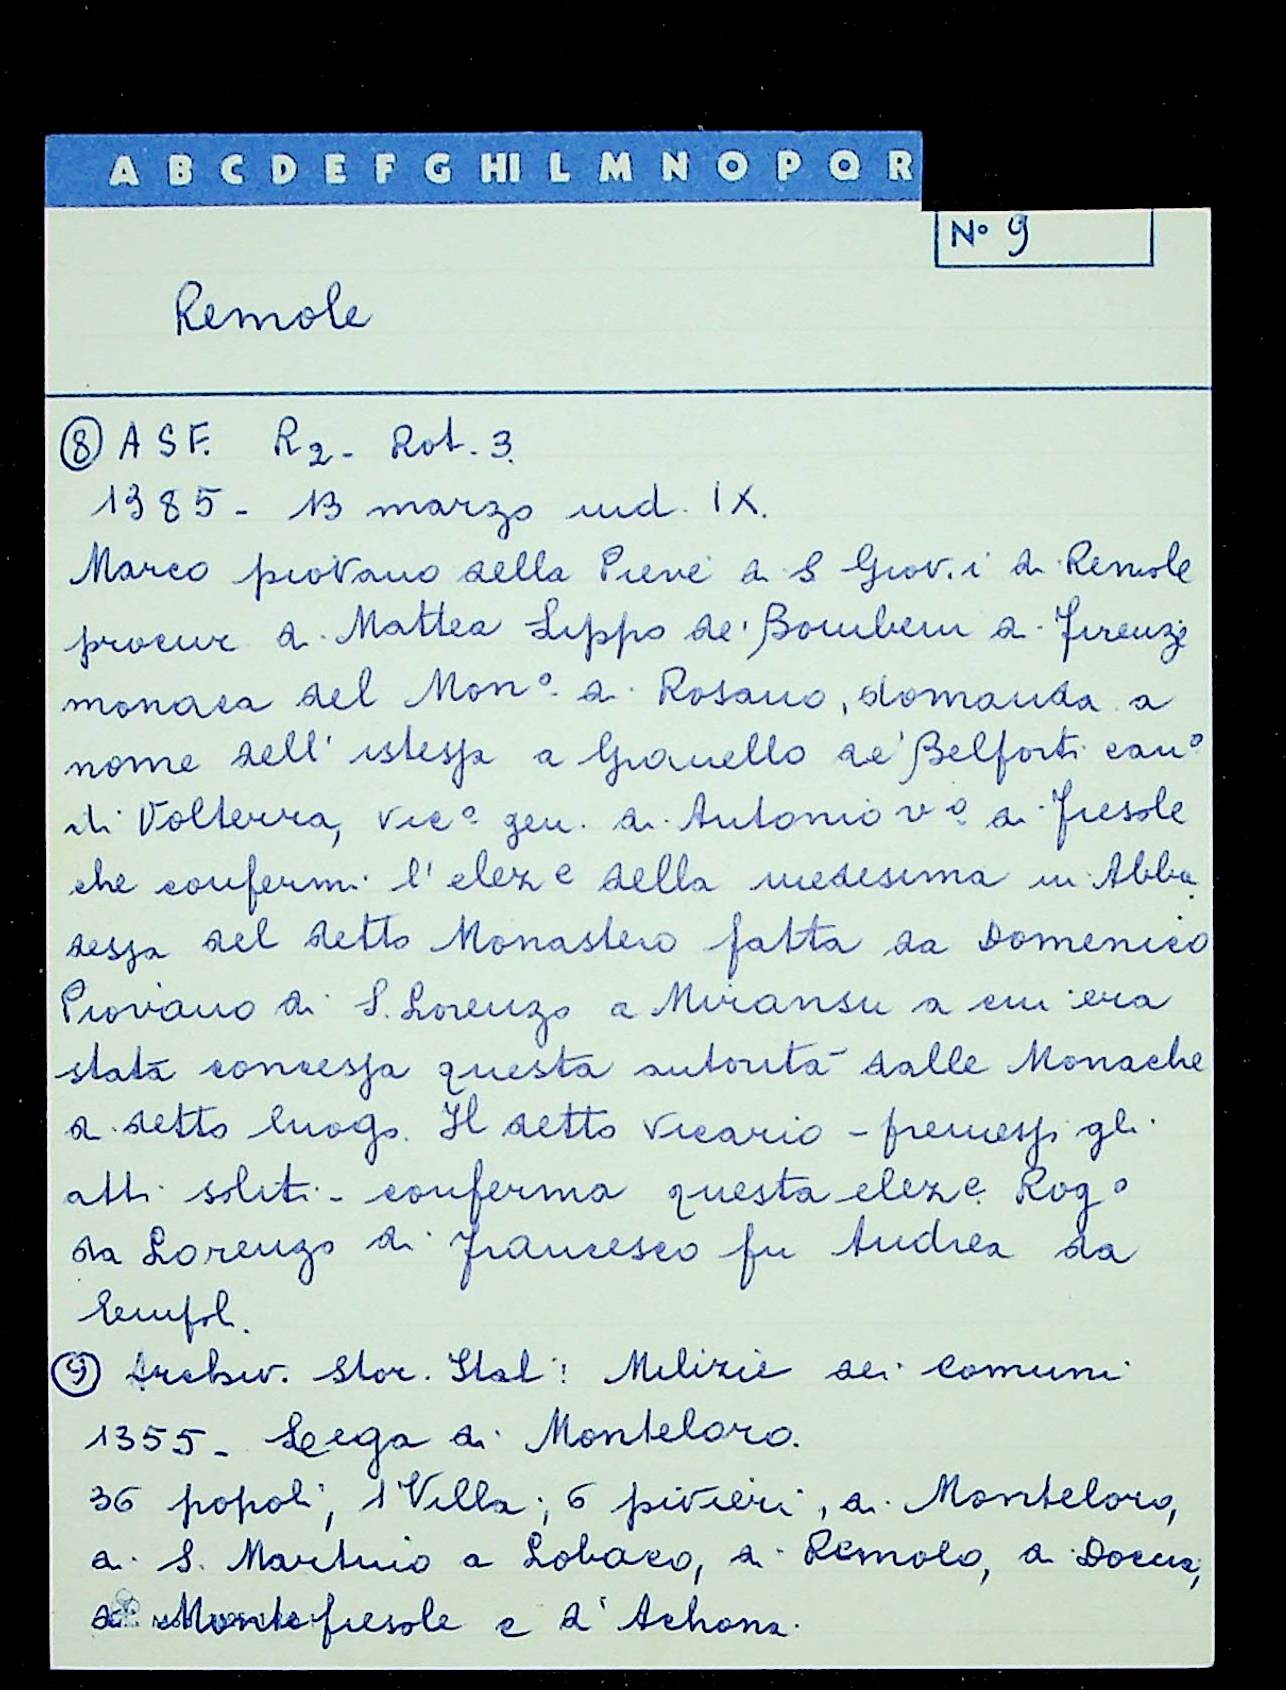 A B C D E F G HI L M N O P Q R
N° 9
Remole
⑧ A S F. R2 - Rot. 3.
1385 - 13 marzo ind. IX.
Marco piovano della Pieve di S Giov.i di Remole
procur di Mattea Lippo de' Bombeni di Firenze
monaca del Mon° di Rosano, domanda a
nome dell' istessa a Gianello de' Belforti can°
di Volterra, vic° gen. di Antonio v° di Fiesole
che confermi l' elez e della medesima in Abba
dessa del detto Monastero fatta da Domenico
Piovano di S. Lorenzo a Miransu a cui era
stata concessa questa autorità dalle Monache
di detto luogo. Il detto Vicario - premessi gli
atti soliti - conferma questa elez e. Rog°
da Lorenzo di Francesco fu Andrea da
⑨ Archiv. Stor. Ital: Milizie dei Comuni
1355 - Lega di Monteloro.
36 popoli, 1 Villa; 6 pivieri, di Monteloro,
di S. Martino a Lobaco, di Remolo, di Doccia,
di Montefiesole e d' Achona.